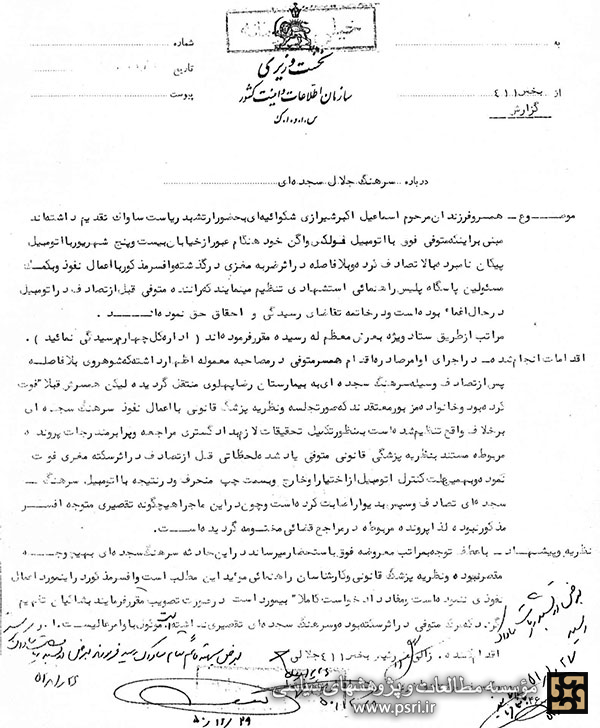 خیلی محرمانه
به
شماره
نخست وزیری
تاریخ
سازمان اطلاعات و امنیت کشور
از بخش ۴۱۱
پیوست
س.ا.و.ا.ک
گزارش
درباره سرهنگ جلال سجده‌ای
موضوع ـ همسر و فرزندان مرحوم اسماعیل اکبر شیرازی شکوائیه‌ای بحضور ارتشبد ریاست ساواک تقدیم داشته‌اند
مبنی بر اینکه متوفی فوق با اتومبیل فولکس واگن خود هنگام عبور از خیابان بیست و پنج شهریور با اتومبیل
پیکان نامبرده بالا تصادف کرده و بلافاصله در اثر ضربه مغزی درگذشته و افسر مذکور با اعمال نفوذ و بکمک
مسئولین پاسگاه پلیس راهنمائی استشهادی تنظیم مینمایند که راننده متوفی قبل از تصادف در اتومبیل
در حال اغماء بوده است و در خاتمه تقاضای رسیدگی و احقاق حق نموده‌اند.
مراتب از طریق ستاد ویژه بعرض معظم له رسیده مقرر فرموده‌اند (اداره کل چهارم رسیدگی نمائید).
اقدامات انجام شده ـ در اجرای اوامر صادره اقدام همسر متوفی در مصاحبه معموله اظهار داشته که شوهر وی بلافاصله
پس از تصادف وسیله سرهنگ سجده‌ای به بیمارستان رضا پهلوی منتقل گردیده لیکن همسرش قبلا فوت
کرده بود و خانواده مزبور معتقدند که صورتجلسه و نظریه پزشک قانونی با اعمال نفوذ سرهنگ سجده‌ای
برخلاف واقع تنظیم شده است بمنظور تکمیل تحقیقات لازم بدادگستری مراجعه و برابر مندرجات پرونده
مربوطه مستند بنظریه پزشکی قانونی متوفی یاد شده لحظاتی قبل از تصادف در اثر سکته مغزی فوت
نموده و بهمین علت کنترل اتومبیل از اختیار او خارج و بسمت چپ منحرف و در نتیجه با اتومبیل سرهنگ
سجده‌ای تصادف و سپس بدیوار اصابت کرده است و چون در این ماجرا هیچگونه تقصیری متوجه افسر
مذکور نبوده لذا پرونده مربوطه در مراجع قضائی مختومه گردیده است.
نظریه و پیشنهاد ـ با عطف توجه بمراتب معروضه فوق باستحضار میرساند در این حادثه سرهنگ سجده‌ای بهیچوجه
مقصر نبوده و نظریه پزشک قانونی و کارشناسان راهنمائی موید این مطلب است و افسر مذکور در اینمورد اعمال
نفوذی ننموده است و مفاد دادخواست کاملا بیمورد است در صورت تصویب مقرر فرمایند بشاکیان تفهیم
گردد که مرگ متوفی در اثر سکته بوده و سرهنگ سجده‌ای تقصیری نداشته است. موکول باوامر عالیست.
اقدام کننده
رهبر بخش ۴۱۱ جلالی
۵۰/۱۲/۲۹
۵۱/۱/۲۶
۵۱/۱/۲۷
مؤسسه مطالعات و پژوهشهای سیاسی
www.psri.ir